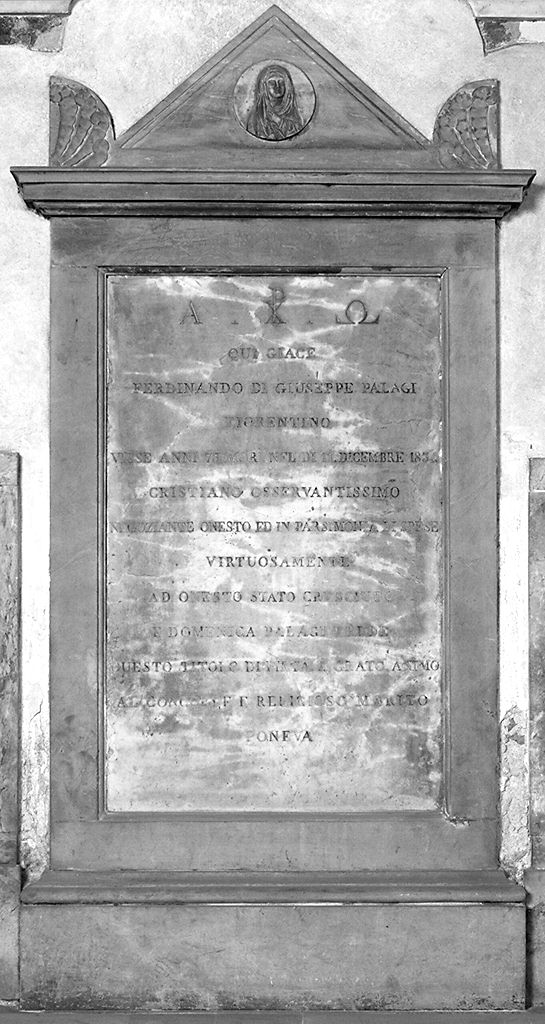 A ☧ Ω
QUI GIACE
FERDINANDO DI GIUSEPPE PALAGI
FIORENTINO
VISSE ANNI MORÌ NEL DI DICEMBRE
CRISTIANO OSSERVANTISSIMO
NEGOZIANTE ONESTO ED IN PARSIMONIA DI SPESE
VIRTUOSAMENTE
AD ONESTO STATO CRESCIUTO
E DOMENICA PALAGI
QUESTO TITOLO DI E GRATO ANIMO
AL E RELIGIOSO MARITO
PONEVA